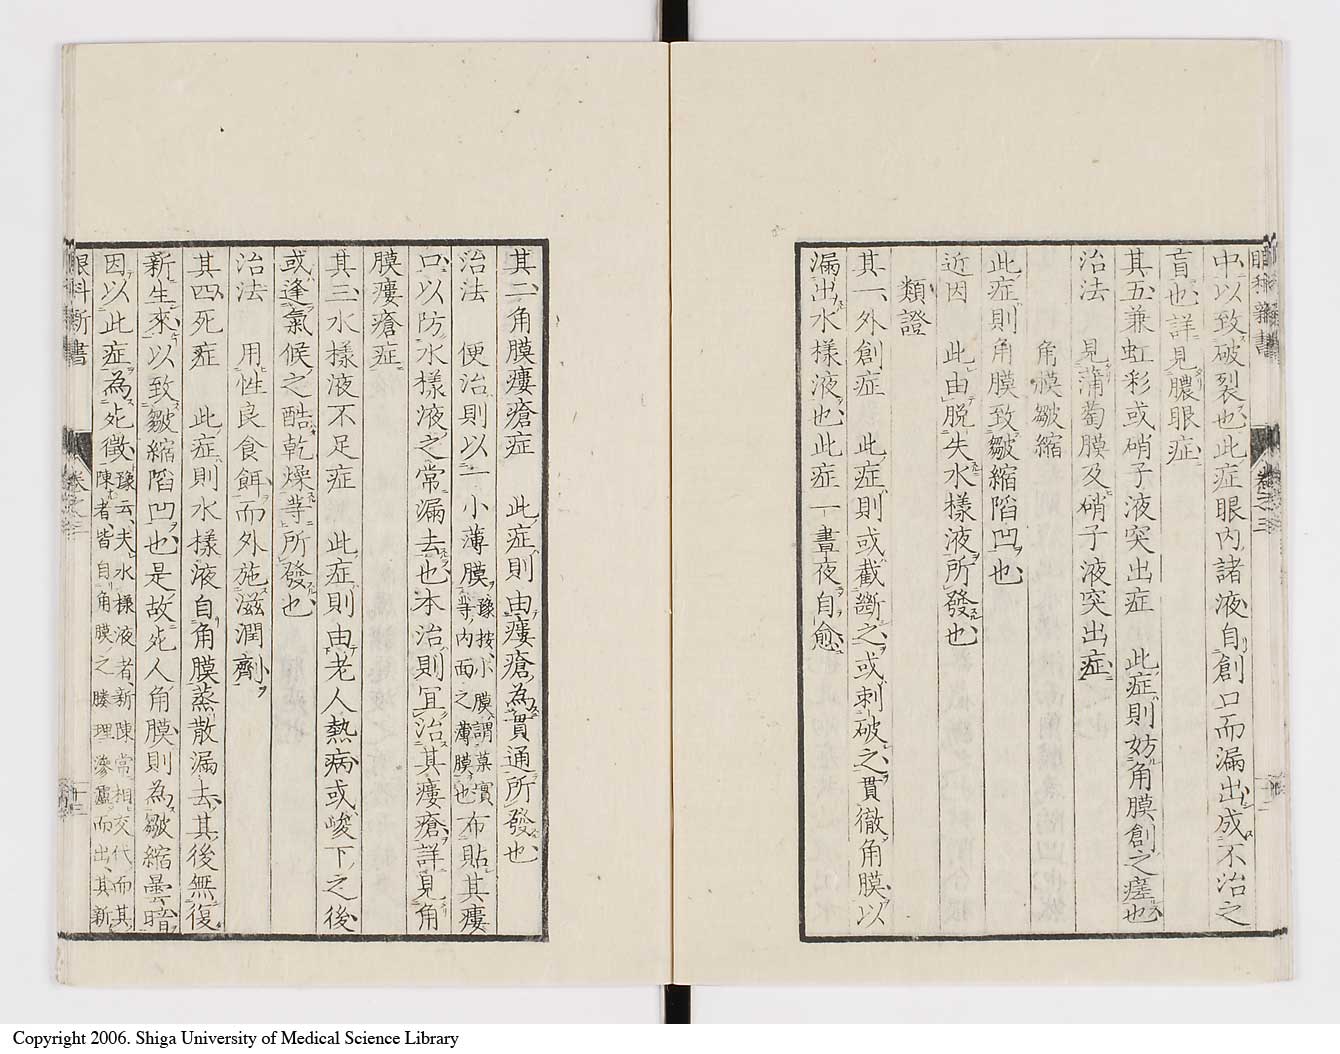 中以致破裂也此症眼内諸液自創口而漏出成不治之
盲也詳見膿眼症
其五兼虹彩或硝子液突出症　此症則妨角膜創之瘥也
治法　見蒲萄膜及硝子液突出症
角膜皺縮
此症則角膜致皺縮陷凹也
近因　此由脱失水樣液所發也
類證
其一外創症　此症則或截斷之或刺破之貫徹角膜以
漏出水樣液也此症一晝夜自愈
眼科新書
卷之三
十二
其二角膜瘻瘡症　此症則由瘻瘡為貫通所發也
治法　便治則以一小薄膜豫按小膜謂菓實等内面之薄膜也布貼其瘻
口以防水樣液之常漏去也本治則宜治其瘻瘡詳見角
膜瘻瘡症
其三水樣液不足症　此症則由老人熱病或峻下之後
或逢氣候之酷乾燥等所發也
治法　用性良食餌而外施滋潤劑
其四死症　此症則水樣液自角膜蒸散漏去其後無復
新生來以致皺縮陷凹也是故死人角膜則為皺縮曇暗
因以此症為死徵豫云夫水樣液者新陳常相交代而其陳者皆自角膜之腠理滲漏而出其新
眼科新書
卷之三
十二
Copyright 2006. Shiga University of Medical Science Library